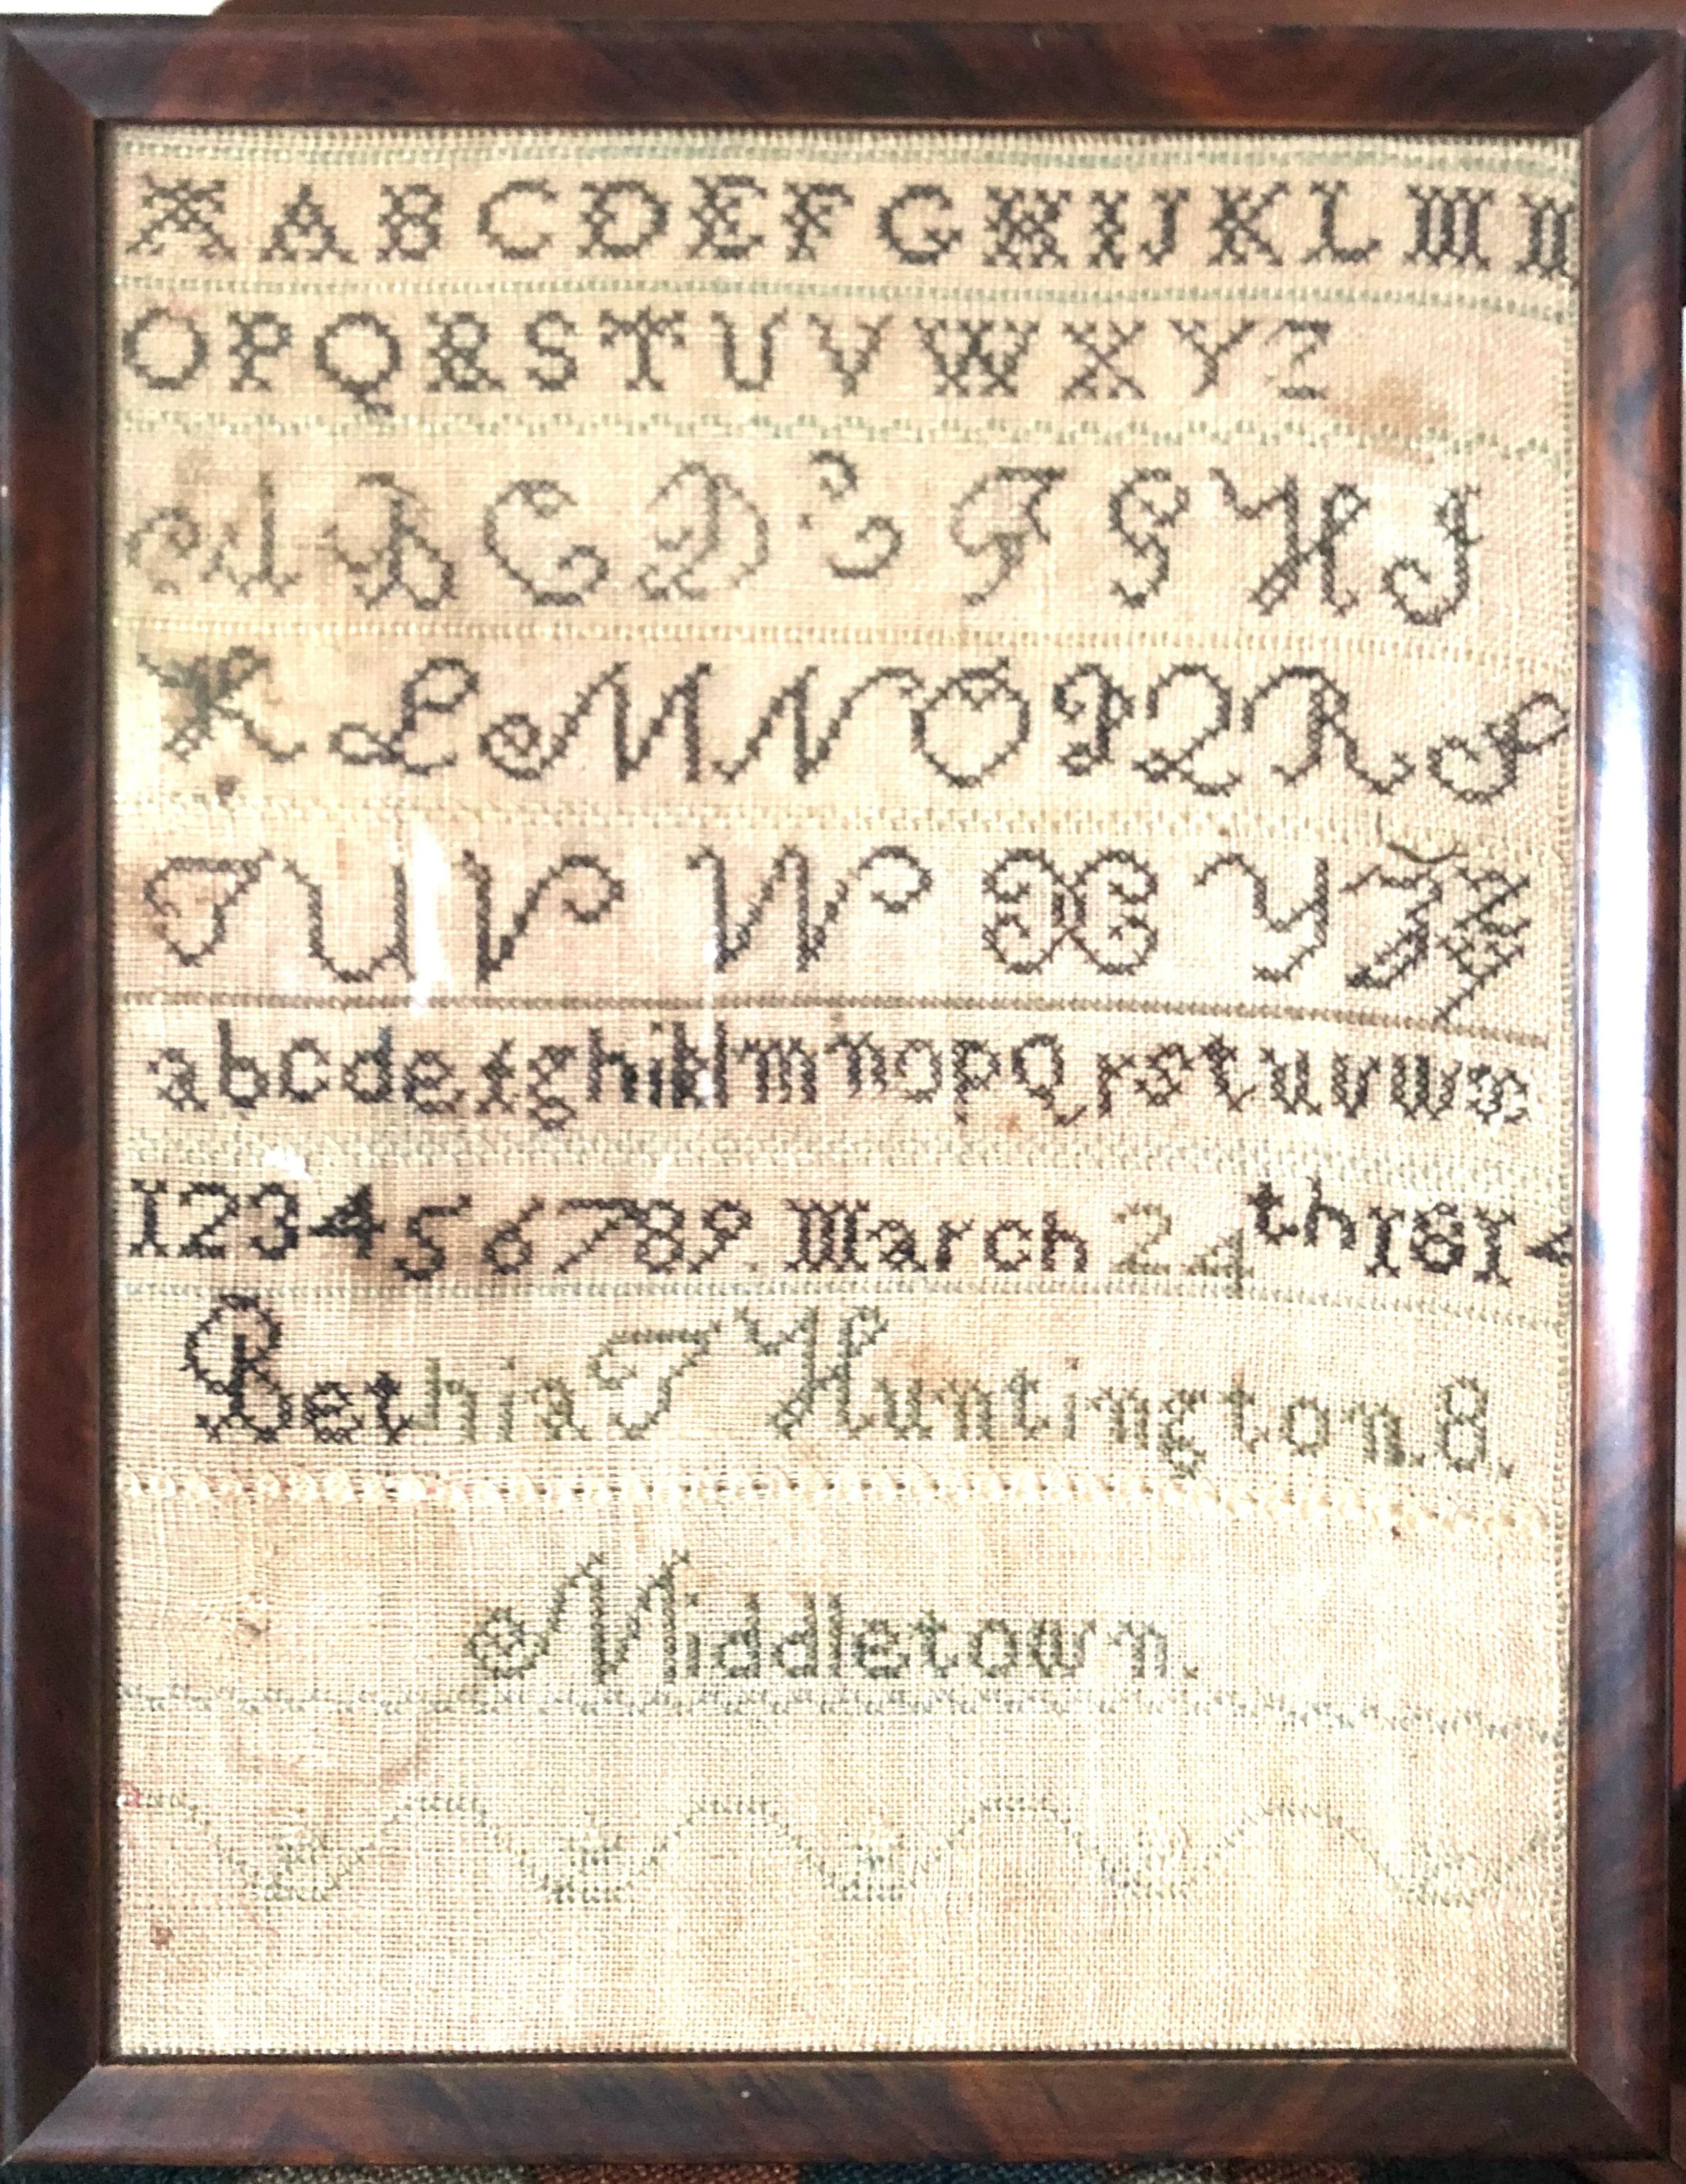 A A B C D E F G H I J K L M N
O P Q R S T U V W X Y Z
A B C D E F G H J
K L M N O P Q R S
T U V W X Y Z &
a b c d e f g h i k l m n o p Q r s t u v w x
1 2 3 4 5 6 7 8 9. March 24th 1814
Bethia T Huntington. 8.
Middletown.